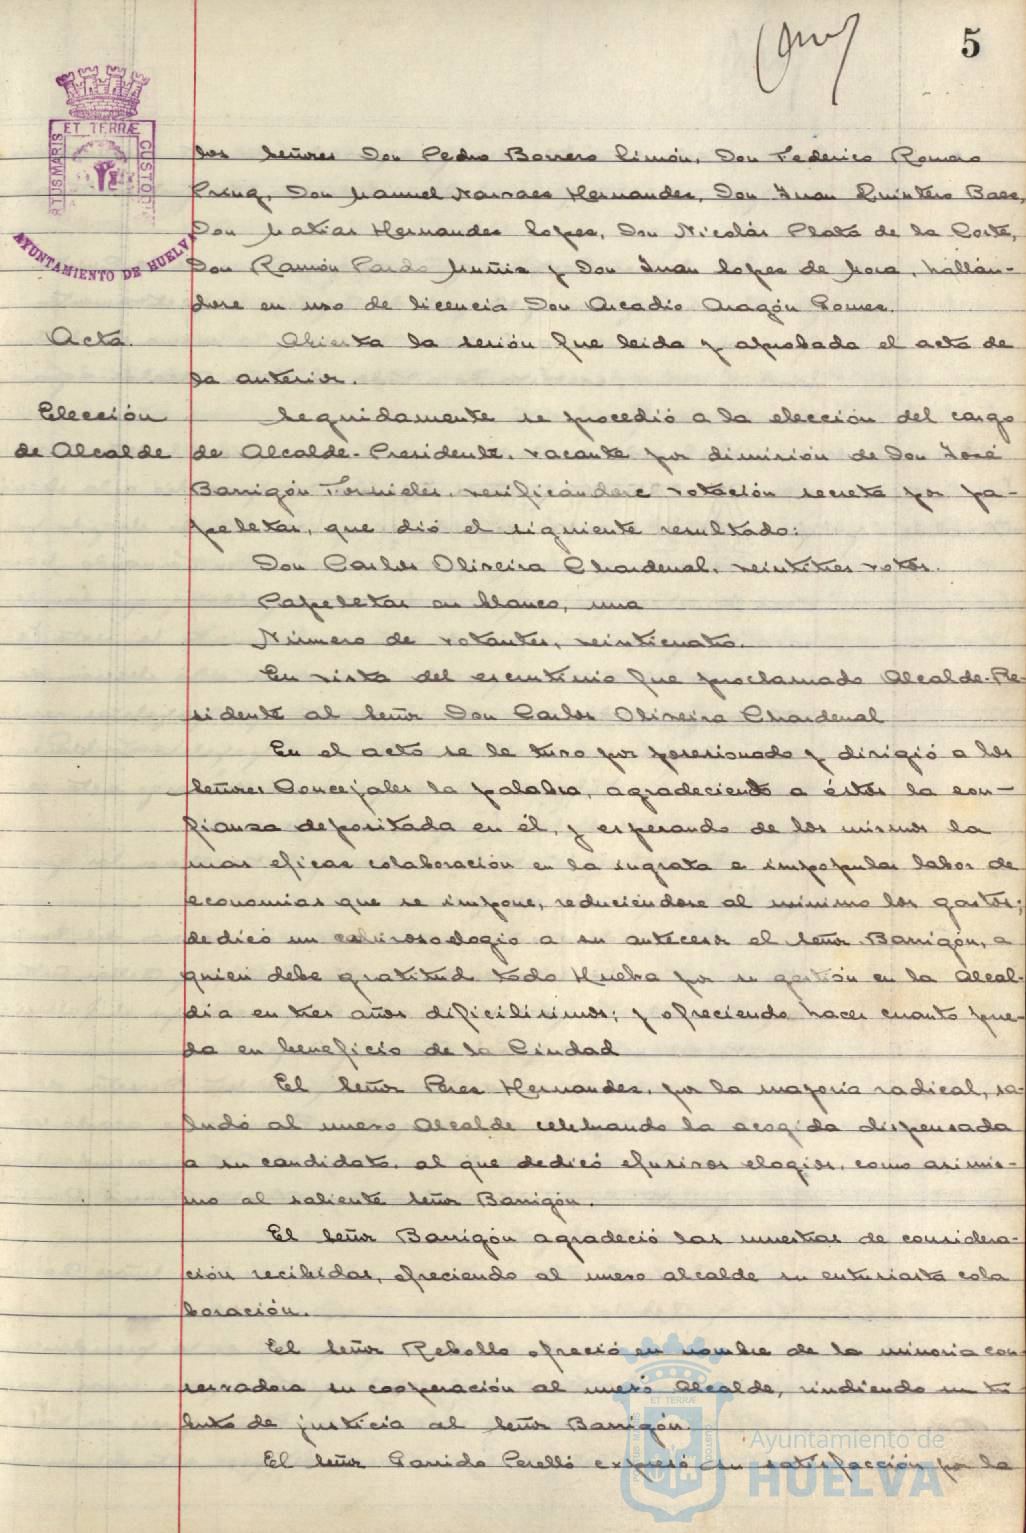 5
ET TERRÆ
CUSTODI
AYUNTAMIENTO DE HUELVA
los Señores Don Pedro Borrero Limón, Don Federico Romero
Don Manuel Narvaez Hernandez, Don Juan Quintero Baez,
Don Matias Hernandez Lopez, Don Nicolás Plata de la Corte,
Don Ramón Pardo Muñiz y Don Juan Lopez de Mora, hallán-
dose en uso de licencia Don Arcadio Aragón Gomez.
Acta. Abierta la sesión fue leida y aprobada el acta de
la anterior.
Elección Seguidamente se procedió a la elección del cargo
de Alcalde de Alcalde-Presidente, vacante por dimisión de Don José
Barrigón Fornieles, verificándose votación secreta por pa-
peletas, que dió el siguiente resultado:
Don Carlos Oliveira Chardenal, veintitres votos.
Papeletas en blanco, una
Número de votantes, veinticuatro.
En vista del escrutinio fue proclamado Alcalde-Pre-
sidente al Señor Don Carlos Oliveira Chardenal
En el acto se le tuvo por posesionado y dirigió a los
Señores Concejales la palabra, agradeciendo a éstos la con-
fianza depositada en él, y esperando de los mismos la
mas eficaz colaboración en la ingrata e impopular labor de
economias que se impone, reduciendose al minimo los gastos;
dedicó un caluroso elogio a su antecesor el Señor Barrigón, a
quien debe gratitud todo Huelva por su gestión en la Alcal-
dia en tres años dificilisimos; y ofreciendo hacer cuanto pue-
da en beneficio de la Ciudad
El Señor Perez Hernandez, por la mayoria radical, sa-
ludó al nuevo Alcalde celebrando la acogida dispensada
a su candidato, al que dedicó efusivos elogios, como asimis-
mo al saliente Señor Barrigón.
El Señor Barrigón agradeció las muestras de considera-
ción recibidas, ofreciendo al nuevo alcalde su entusiasta cola
boración.
El Señor Rebollo ofreció en nombre de la minoria con
servadora su cooperación al nuevo Alcalde, rindiendo un tri
buto de justicia al Señor Barrigón.
El Señor Garrido Perelló expresó su satisfacción por la
Ayuntamiento de
HUELVA